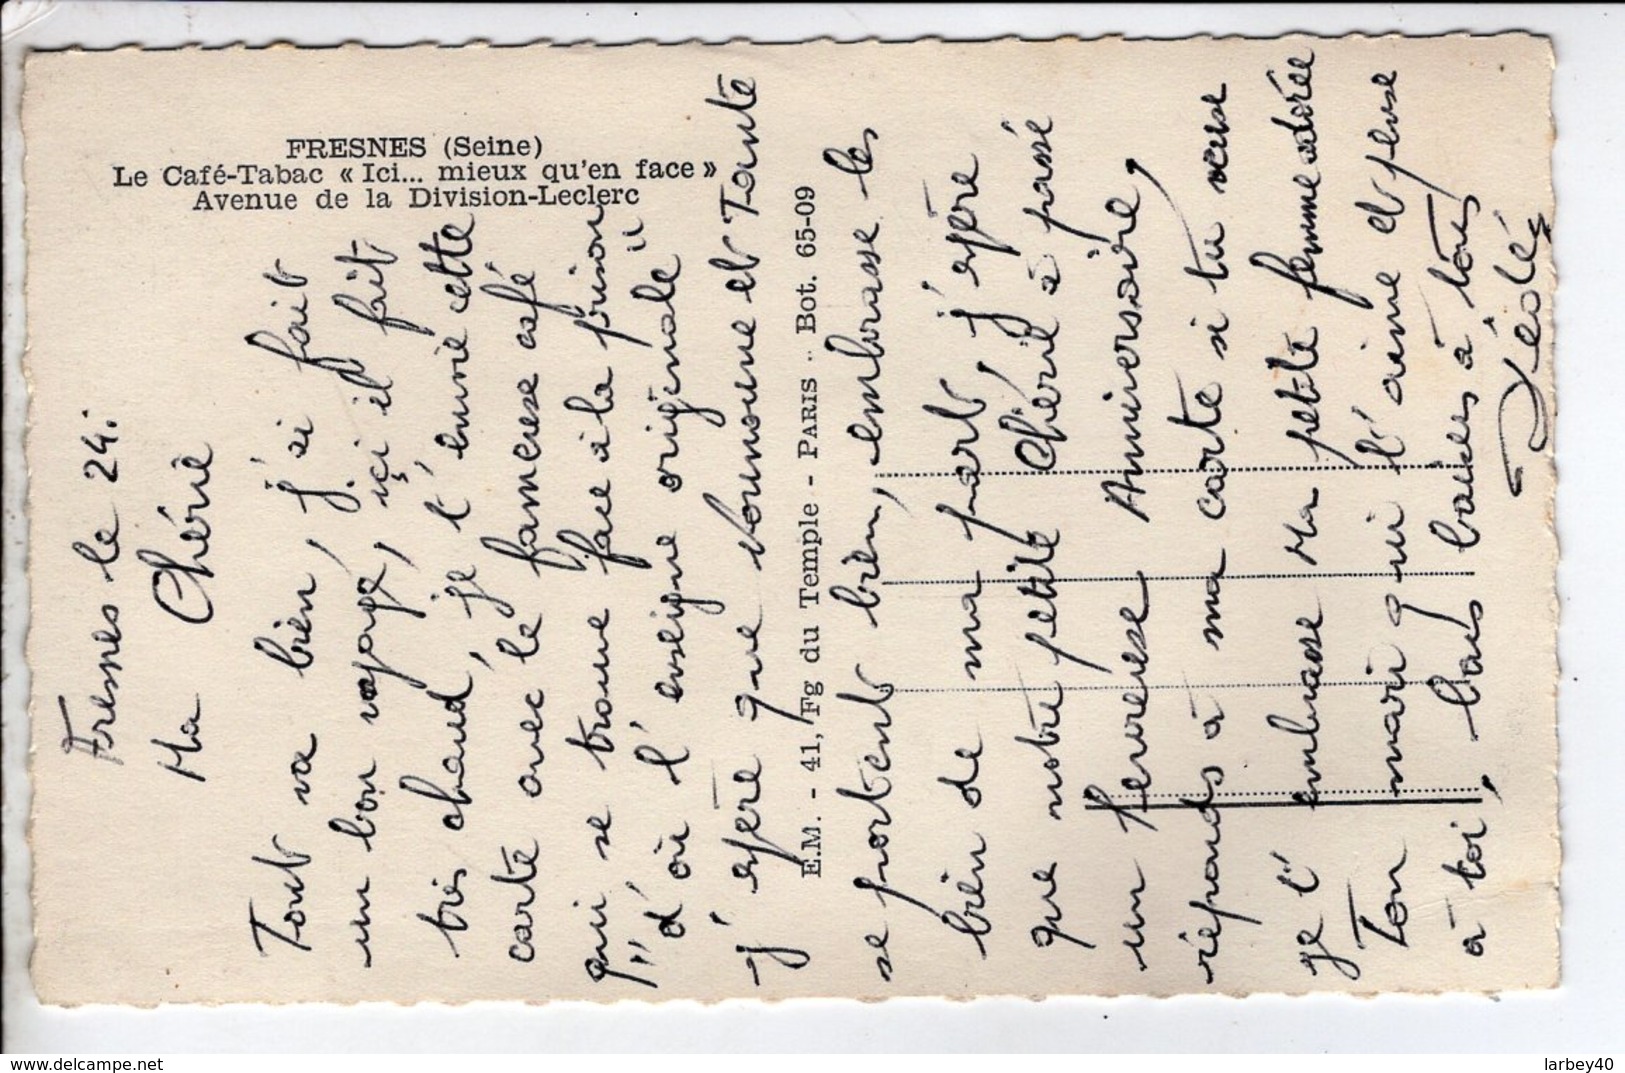 FRESNES (Seine)
Le Café-Tabac « Ici... mieux qu'en face »
Avenue de la Division-Leclerc
E.M. - 41, Fg du Temple - PARIS - Bot. 65-09
Fresnes le 24.
Ma Chérie
Tout va bien, j'ai fait
un bon voyage, içi il fait
très chaud, je t'envoie cette
carte avec le fameuse café
qui se trouve face à la prison
d'où l'enseigne originale
j'espère que Nounoune et Tante
se portent bien, embrasse les
bien de ma part, j'espère
que notre petite Chérie à passé
un heureuse Anniversaire,
réponds à ma carte si tu veux
je t'embrasse Ma petite femme adorée
Ton mari qui t'aime et pense
à toi, bons baisers à tous
larbey40